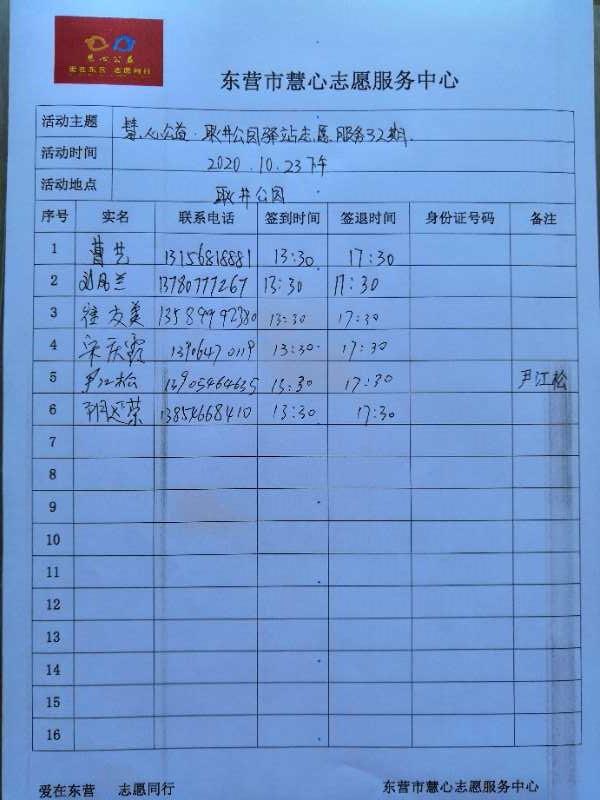 慧心公益
爱在东营 志愿同行
东营市慧心志愿服务中心
活动主题 慧心公益·耿井公园驿站志愿服务32期.
活动时间 2020.10.23下午
活动地点 耿井公园
序号 实名 联系电话 签到时间 签退时间 身份证号码 备注
1 曹 13156818881 13:30 17:30
2 刘凤兰 13780777267 13:30 17:30
3 徐友美 13589992380 13:30 17:30
4 宋庆霞 13906470119 13:30 17:30
5 尹江松 13905464635 13:30 17:30 尹江松
6 荣 13854668410 13:30 17:30
7
8
9
10
11
12
13
14
15
16
爱在东营 志愿同行 东营市慧心志愿服务中心